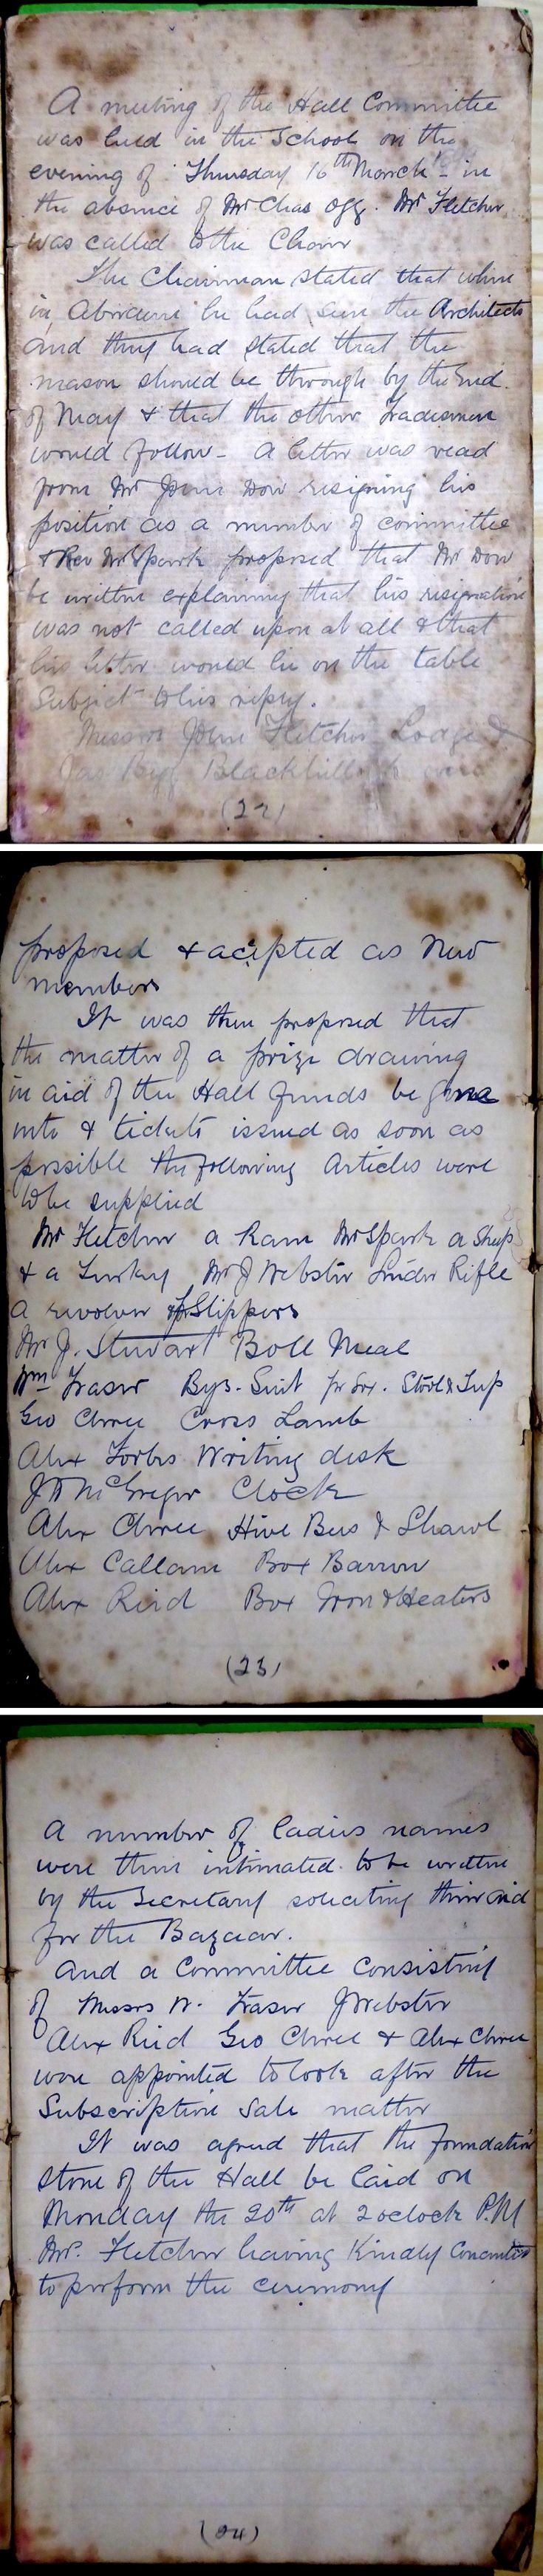 A meeting of the Hall Committee
was held in the School on the
evening of Thursday 16th March - in
the absence of Mr Chas Ogg. Mr Fletcher
was called to the Chair
The Chairman stated that when
in Aberdeen he had seen the Architects
and they had stated that the
mason should be through by the End
of May & that the other Tradesmen
would follow - A letter was read
from Mr John Dow resigning his
position as a member of committee
& Rev Mr Spark proposed that Mr Dow
be written explaining that his resignation
was not called upon at all & that
his letter would lie on the table
Subject to his reply.
Messrs John Fletcher Lodge &
Jas Blackhillock were
(22)
proposed & acepted as New
members
It was then proposed that
the matter of a prize drawing
in aid of the Hall funds be gone
into & tickets issued as soon as
possible the following Articles were
to be supplied
Mr Fletcher a Ram Mr Spark a Sheep
& a Turkey Mr J Webster Snider Rifle
a revolver & pr Slippers
Mr J. Stuart Boll Meal
Wm Fraser Boys. Suit pr Sox. Stool &
Geo Chree Cross Lamb
Alex Forbes Writing desk
McGregor Clock
Alex Chree Hive Bees & Shawl
Alex Callam Box Barrow
Alex Reid Box Iron & Heaters
(23)
A number of ladies names
were then intimated to be written
by the Secretary soliciting their aid
for the Bazaar.
And a Committee Consisting
of Messrs W. Fraser J Webster
Alex Reid Geo Chree & Alex Chree
were appointed to look after the
Subscription Sale matter
It was agreed that the foundation
stone of the Hall be laid on
Monday the 20th at 2 oclock P.M
Mr. Fletcher having Kindly Concented
to perform the ceremony
(24)